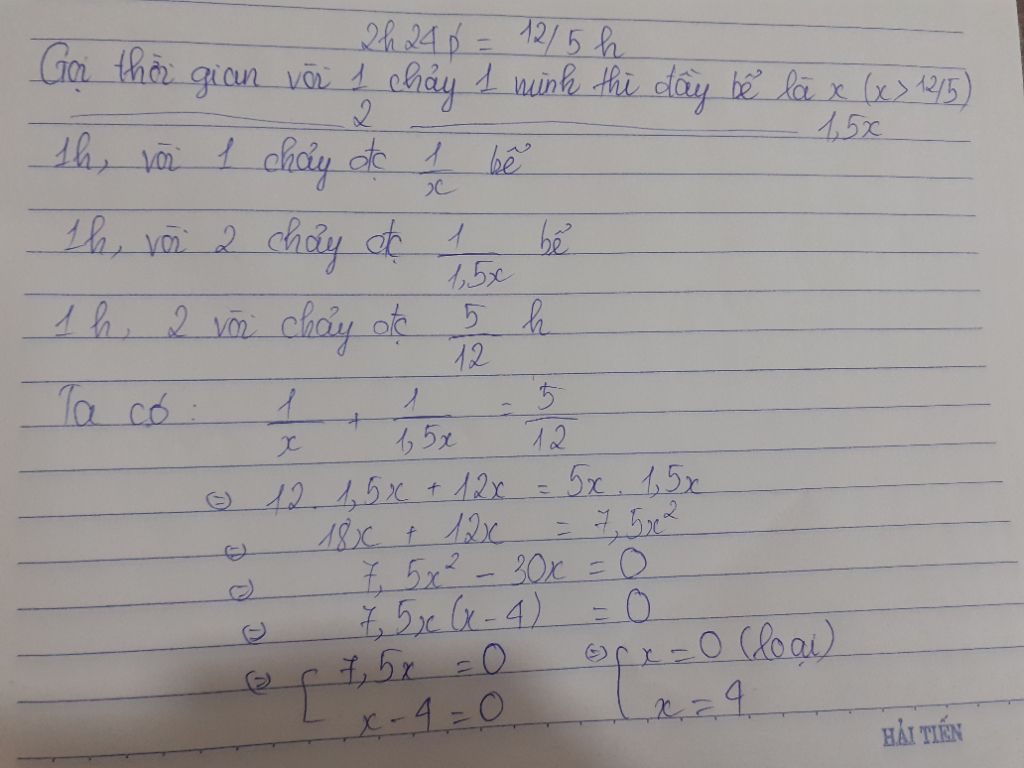 2h 24p = 12/5 h
Gọi thời gian vòi 1 chảy 1 mình thì đầy bể là x (x > 12/5)
2 1,5x
1h, vòi 1 chảy đc 1/x bể
1h, vòi 2 chảy đc 1/1,5x bể
1h, 2 vòi chảy đc 5/12 h
Ta có: 1/x + 1/1,5x = 5/12
⇔ 12. 1,5x + 12x = 5x. 1,5x
⇔ 18x + 12x = 7,5x²
⇔ 7,5x² - 30x = 0
⇔ 7,5x(x-4) = 0
⇔ [ 7,5x = 0 ⇔ [ x = 0 (loại)
x - 4 = 0 x = 4
HẢI TIẾN